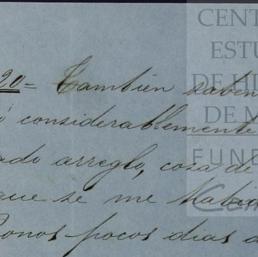 20 = Tambien saben
ó considerablemente
ado arreglo, cosa de
que se me habia
onos pocos dias
CENT
ESTU
DE HI
DE M
FUND